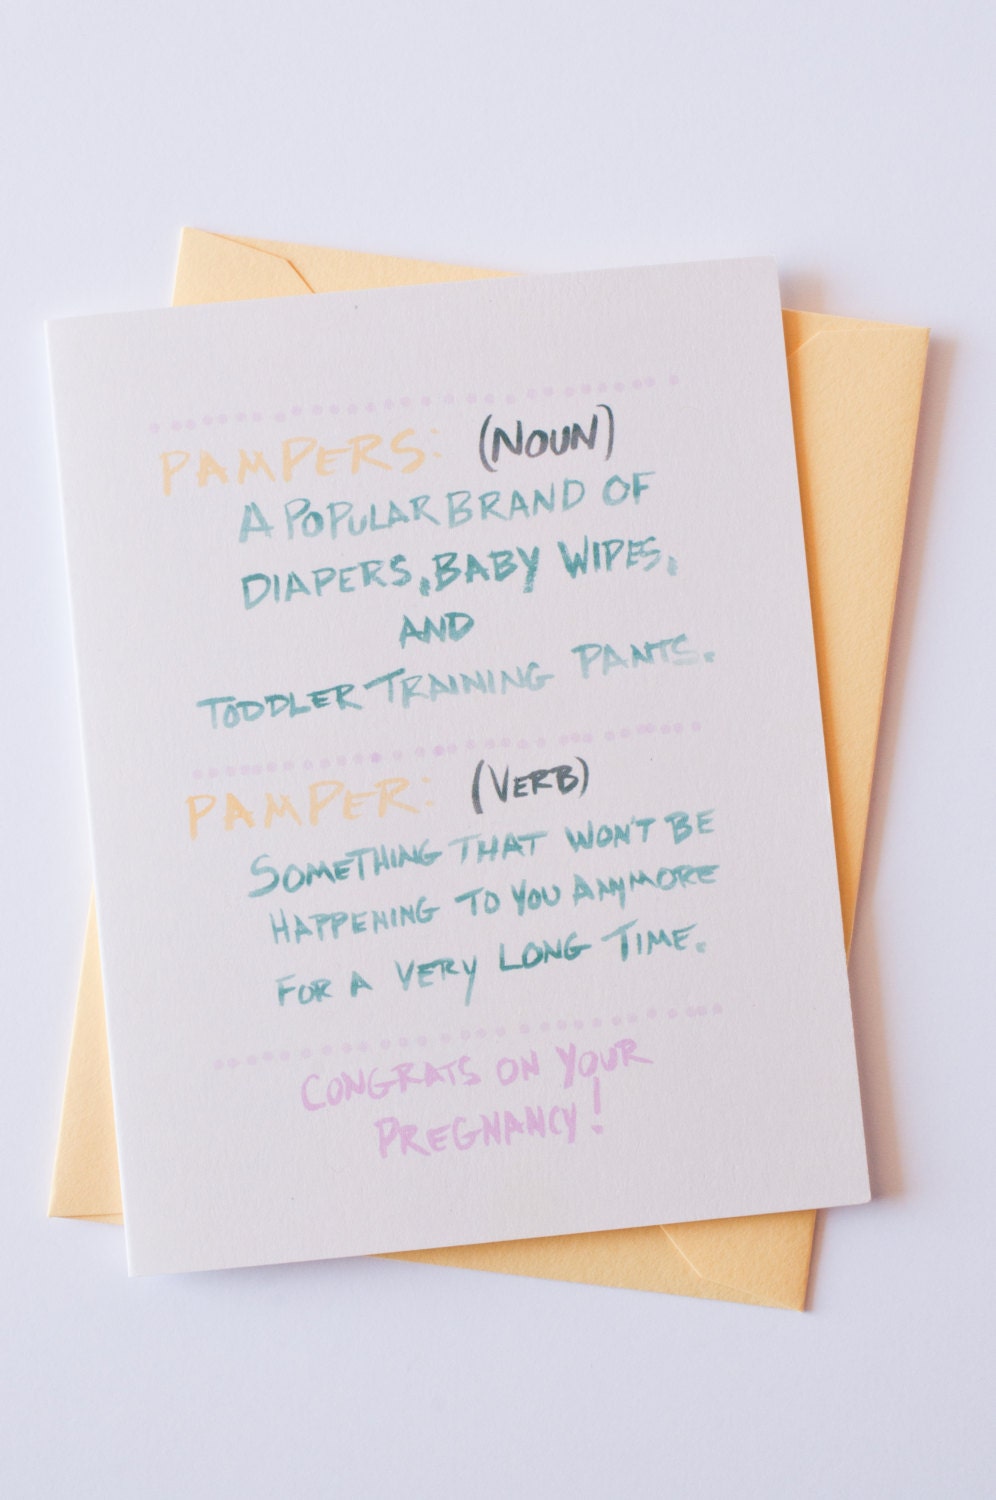 PAMPERS: (NOUN)
A POPULAR BRAND OF
DIAPERS, BABY WIPES,
AND
TODDLER TRAINING PANTS.
PAMPER: (VERB)
SOMETHING THAT WON'T BE
HAPPENING TO YOU ANYMORE
FOR A VERY LONG TIME.
CONGRATS ON YOUR
PREGNANCY!